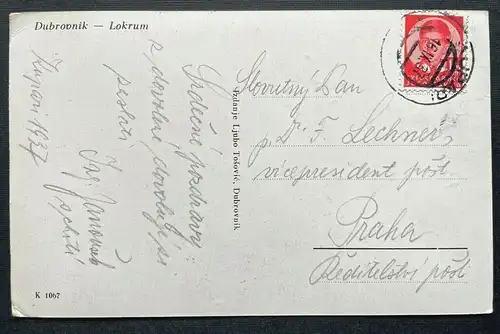 Dubrovnik — Lokrum
Kupari 1937
Srdečné pozdravy
z dovolené dovolují si
poslati
Ing. Janoušek
s chotí
Izdanje Ljubo Tošović, Dubrovnik
Slovutný Pan
p. Dr. F. Lechner,
vicepresident pošt
Praha
Ředitelství pošt
K 1067